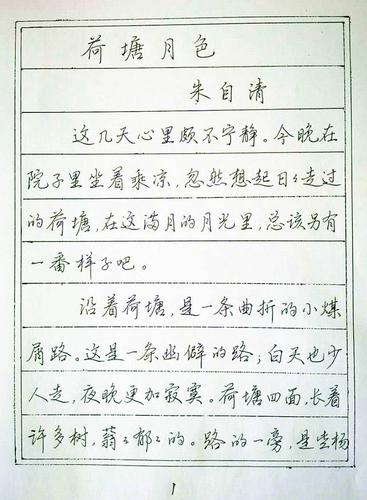 荷塘月色
朱自清
这几天心里颇不宁静。今晚在
院子里坐着乘凉,忽然想起日々走过
的荷塘,在这满月的月光里,总该另有
一番样子吧。
沿着荷塘,是一条曲折的小煤
屑路。这是一条幽僻的路;白天也少
人走,夜晚更加寂寞。荷塘四面,长着
许多树,蓊々郁々的。路的一旁,是些杨
1